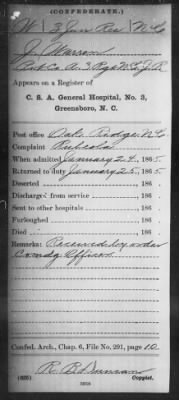 (CONFEDERATE.)
W | 3 Jun Res | N. C.
J. Warren
Pvt Co. A. 3 Rgt N.C. J. R.
Appears on a Register of
C. S. A. General Hospital, No. 3,
Greensboro, N. C.
Post office Oak Ridge N.C.
Complaint Rubeola
When admitted January 24, 1865
Returned to duty January 25, 1865
Deserted , 186
Discharged from service , 186
Sent to other hospitals , 186
Furloughed , 186
Died , 186
Remarks: Received by order
Comdg Officer
Confed. Arch., Chap. 6, File No. 291, page 10
R. B. Duncan
(635) Copyist.